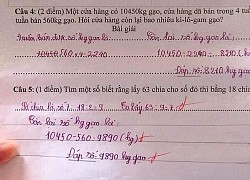 Câu 4: (2 điểm) Một cửa hàng có 10450kg gạo, cửa hàng đã bán trong 4 tuần
tuần bán 560kg gạo. Hỏi cửa hàng còn lại bao nhiêu ki-lô-gam gạo?
Bài giải
số kg gạo là: Còn lại số kg gạo là:
10450 - 2240 = 8210 (kg)
Đáp số: 8210 kg gạo
Câu 5: (1 điểm) Tìm một số biết rằng lấy 63 chia cho số đó thì bằng 18 chia
Ta lấy 63 : 9 = 7
Còn lại số kg gạo là:
10450 - 560 = 9890 (kg)
Đáp số: 9890 kg gạo